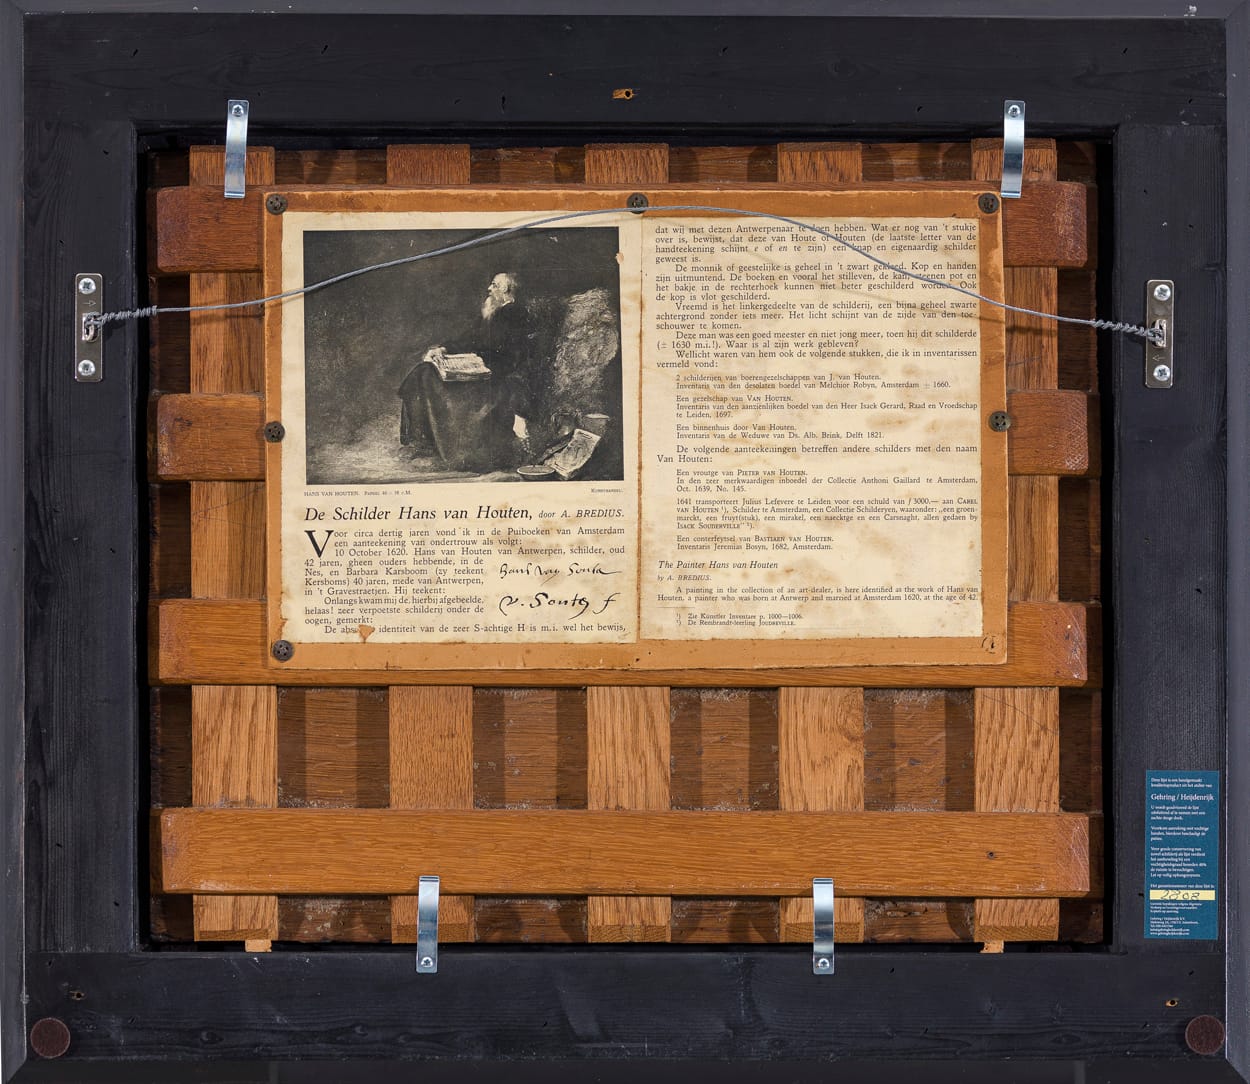 HANS VAN HOUTEN. Paneel 46 × 38 c.M.
Kunsthandel.
De Schilder Hans van Houten, door A. BREDIUS.
Voor circa dertig jaren vond ik in de Puiboeken van Amsterdam
een aanteekening van ondertrouw als volgt:
10 October 1620. Hans van Houten van Antwerpen, schilder, oud
42 jaren, gheen ouders hebbende, in de
Nes, en Barbara Karsboom (zy teekent
Kersboms) 40 jaren, mede van Antwerpen,
in 't Gravestraetjen. Hij teekent:
Onlangs kwam mij de hierbij afgebeelde,
helaas! zeer verpoetste schilderij onder de
oogen, gemerkt:
De identiteit van de zeer S-achtige H is m.i. wel het bewijs,
dat wij met dezen Antwerpenaar te doen hebben. Wat er nog van 't stukje
over is, bewijst, dat deze van Houte of Houten (de laatste letter van de
handteekening schijnt e of en te zijn) een knap en eigenaardig schilder
geweest is.
De monnik of geestelijke is geheel in 't zwart gekleed. Kop en handen
zijn uitmuntend. De boeken en vooral het stilleven, de kan, steenen pot en
het bakje in de rechterhoek kunnen niet beter geschilderd worden. Ook
de kop is vlot geschilderd.
Vreemd is het linkergedeelte van de schilderij, een bijna geheel zwarte
achtergrond zonder iets meer. Het licht schijnt van de zijde van den toe-
schouwer te komen.
Deze man was een goed meester en niet jong meer, toen hij dit schilderde
(± 1630 m.i.!). Waar is al zijn werk gebleven?
Wellicht waren van hem ook de volgende stukken, die ik in inventarissen
vermeld vond:
2 schilderijen van boerengezelschappen van J. van Houten.
Inventaris van den desolaten boedel van Melchior Robyn, Amsterdam ± 1660.
Een gezelschap van VAN HOUTEN.
Inventaris van den aanzienlijken boedel van den Heer Isack Gerard, Raad en Vroedschap
te Leiden, 1697.
Een binnenhuis door Van Houten.
Inventaris van de Weduwe van Ds. Alb. Brink, Delft 1821.
De volgende aanteekeningen betreffen andere schilders met den naam
Van Houten:
Een vroutge van PIETER VAN HOUTEN.
In den zeer merkwaardigen inboedel der Collectie Anthoni Gaillard te Amsterdam,
Oct. 1639, No. 145.
1641 transporteert Julius Lefevere te Leiden voor een schuld van f 3000.— aan CAREL
VAN HOUTEN ¹), Schilder te Amsterdam, een Collectie Schilderyen, waaronder: „een groen-
marckt, een fruyt(stuk), een mirakel, een naecktge en een Carsnaght, allen gedaen by
ISACK
Een conterfeytsel van BASTIAEN VAN HOUTEN.
Inventaris Jeremias Bosyn, 1682, Amsterdam.
The Painter Hans van Houten
by A. BREDIUS.
A painting in the collection of an art-dealer, is here identified as the work of Hans van
Houten, a painter who was born at Antwerp and married at Amsterdam 1620, at the age of 42.
¹) Zie Künstler Inventare p. 1000—1006.
²) De Rembrandt-leerling JOUDREVILLE.
Deze lijst is een handgemaakt
kwaliteitsproduct uit het atelier van
Gehring / Heijdenrijk
Het garantienummer van deze lijst is: